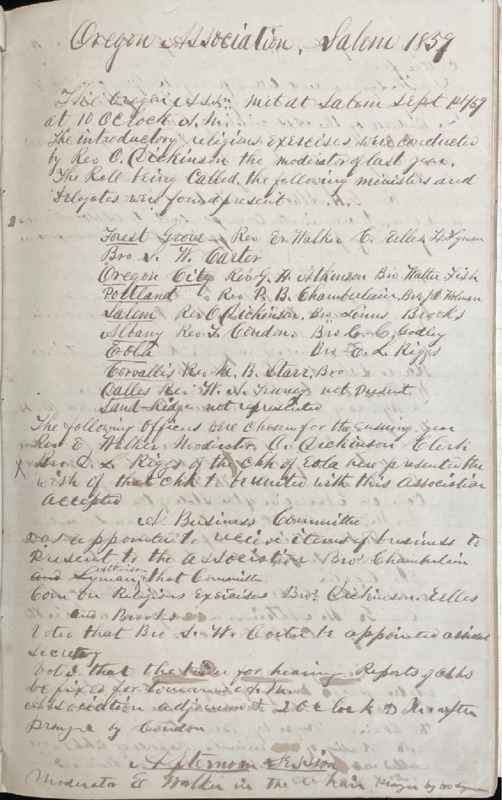 Oregon Association, Salem 1859
The Oregon Assn. met at Salem Sept 14/59
at 10 Oclock A.M.
The introductory religious exercises were conducted
by Rev O. Dickinson the moderator of last year.
The Roll being Called, the following ministers and
Delegates were found present
Forest Grove Rev E. Walker C. Eells H. Lyman
Bro S. W. Carter
Oregon City Rev G. H. Atkinson Bro Walter Fish
Portland Rev P. B. Chamberlain, Bro Holman
Salem Rev O. Dickinson. Bro Linus Brooks
Albany Rev T. Condon. Bro C. C. Godley
Eola Bro E. L. Riggs
Corvallis Rev M. B. Starr, Bro
Dalles Rev W. A. Tenney not present
Sand Ridge not represented
The following Officers were chosen for the ensuing year
Rev E Walker Moderator, O. Dickinson Clerk
Bro. L. Riggs of the chh of Eola here presented the
wish of that chh to be united with this association
accepted
A Business Committee
was appointed to receive items of business to
present to the association Bros Chamberlain
Atkinson
and Lyman, that Committee
Com on Religious Exercises Bros Dickinson. Eells
and Brooks
Voted that Bro S. W. Carter be appointed assistant
Secretary
Voted that the time for hearing Reports of chhs
be fixed for tomorrow A.M.
Association adjourned to 2 Oclock P.M. after
prayer by Condon
Afternoon Session
Moderator E Walker in the chair prayer by Lyman